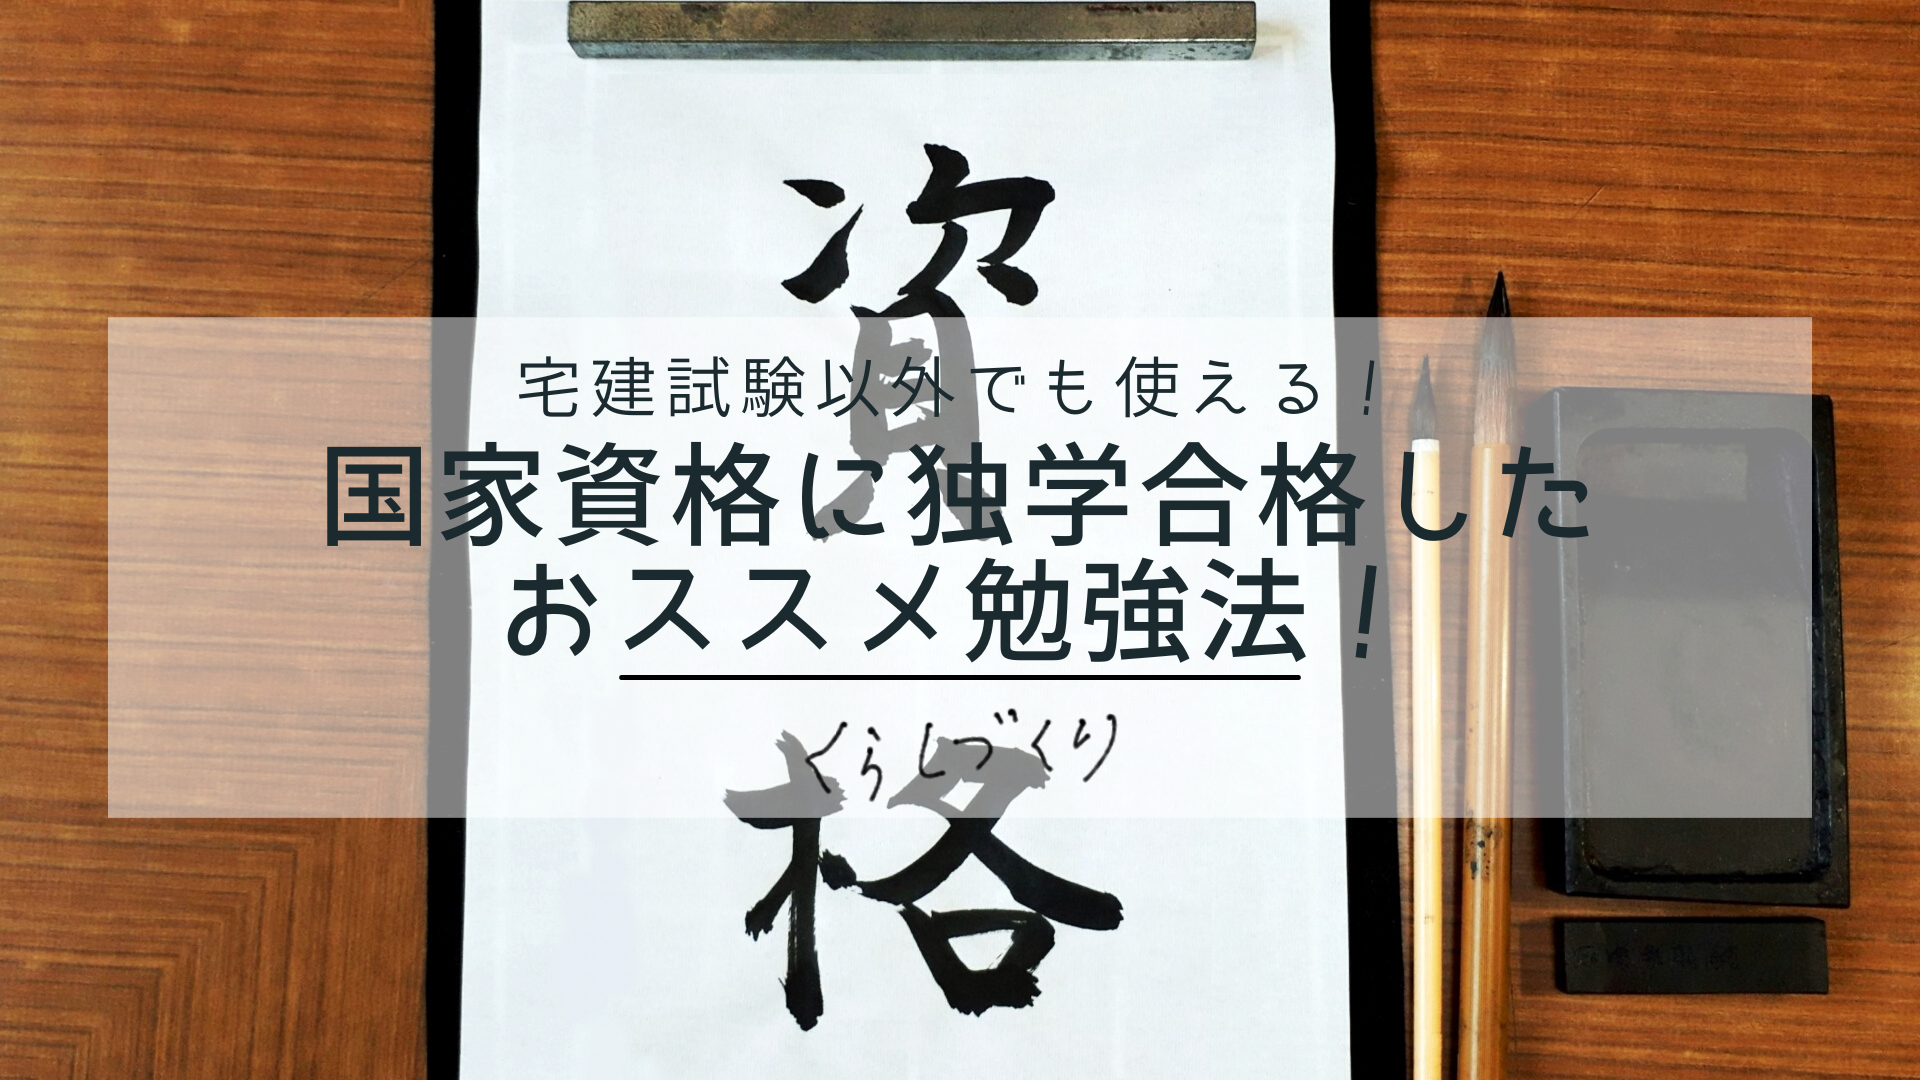 宅建試験以外でも使える！
国家資格に独学合格した
おススメ勉強法！
くらしづくり
資格